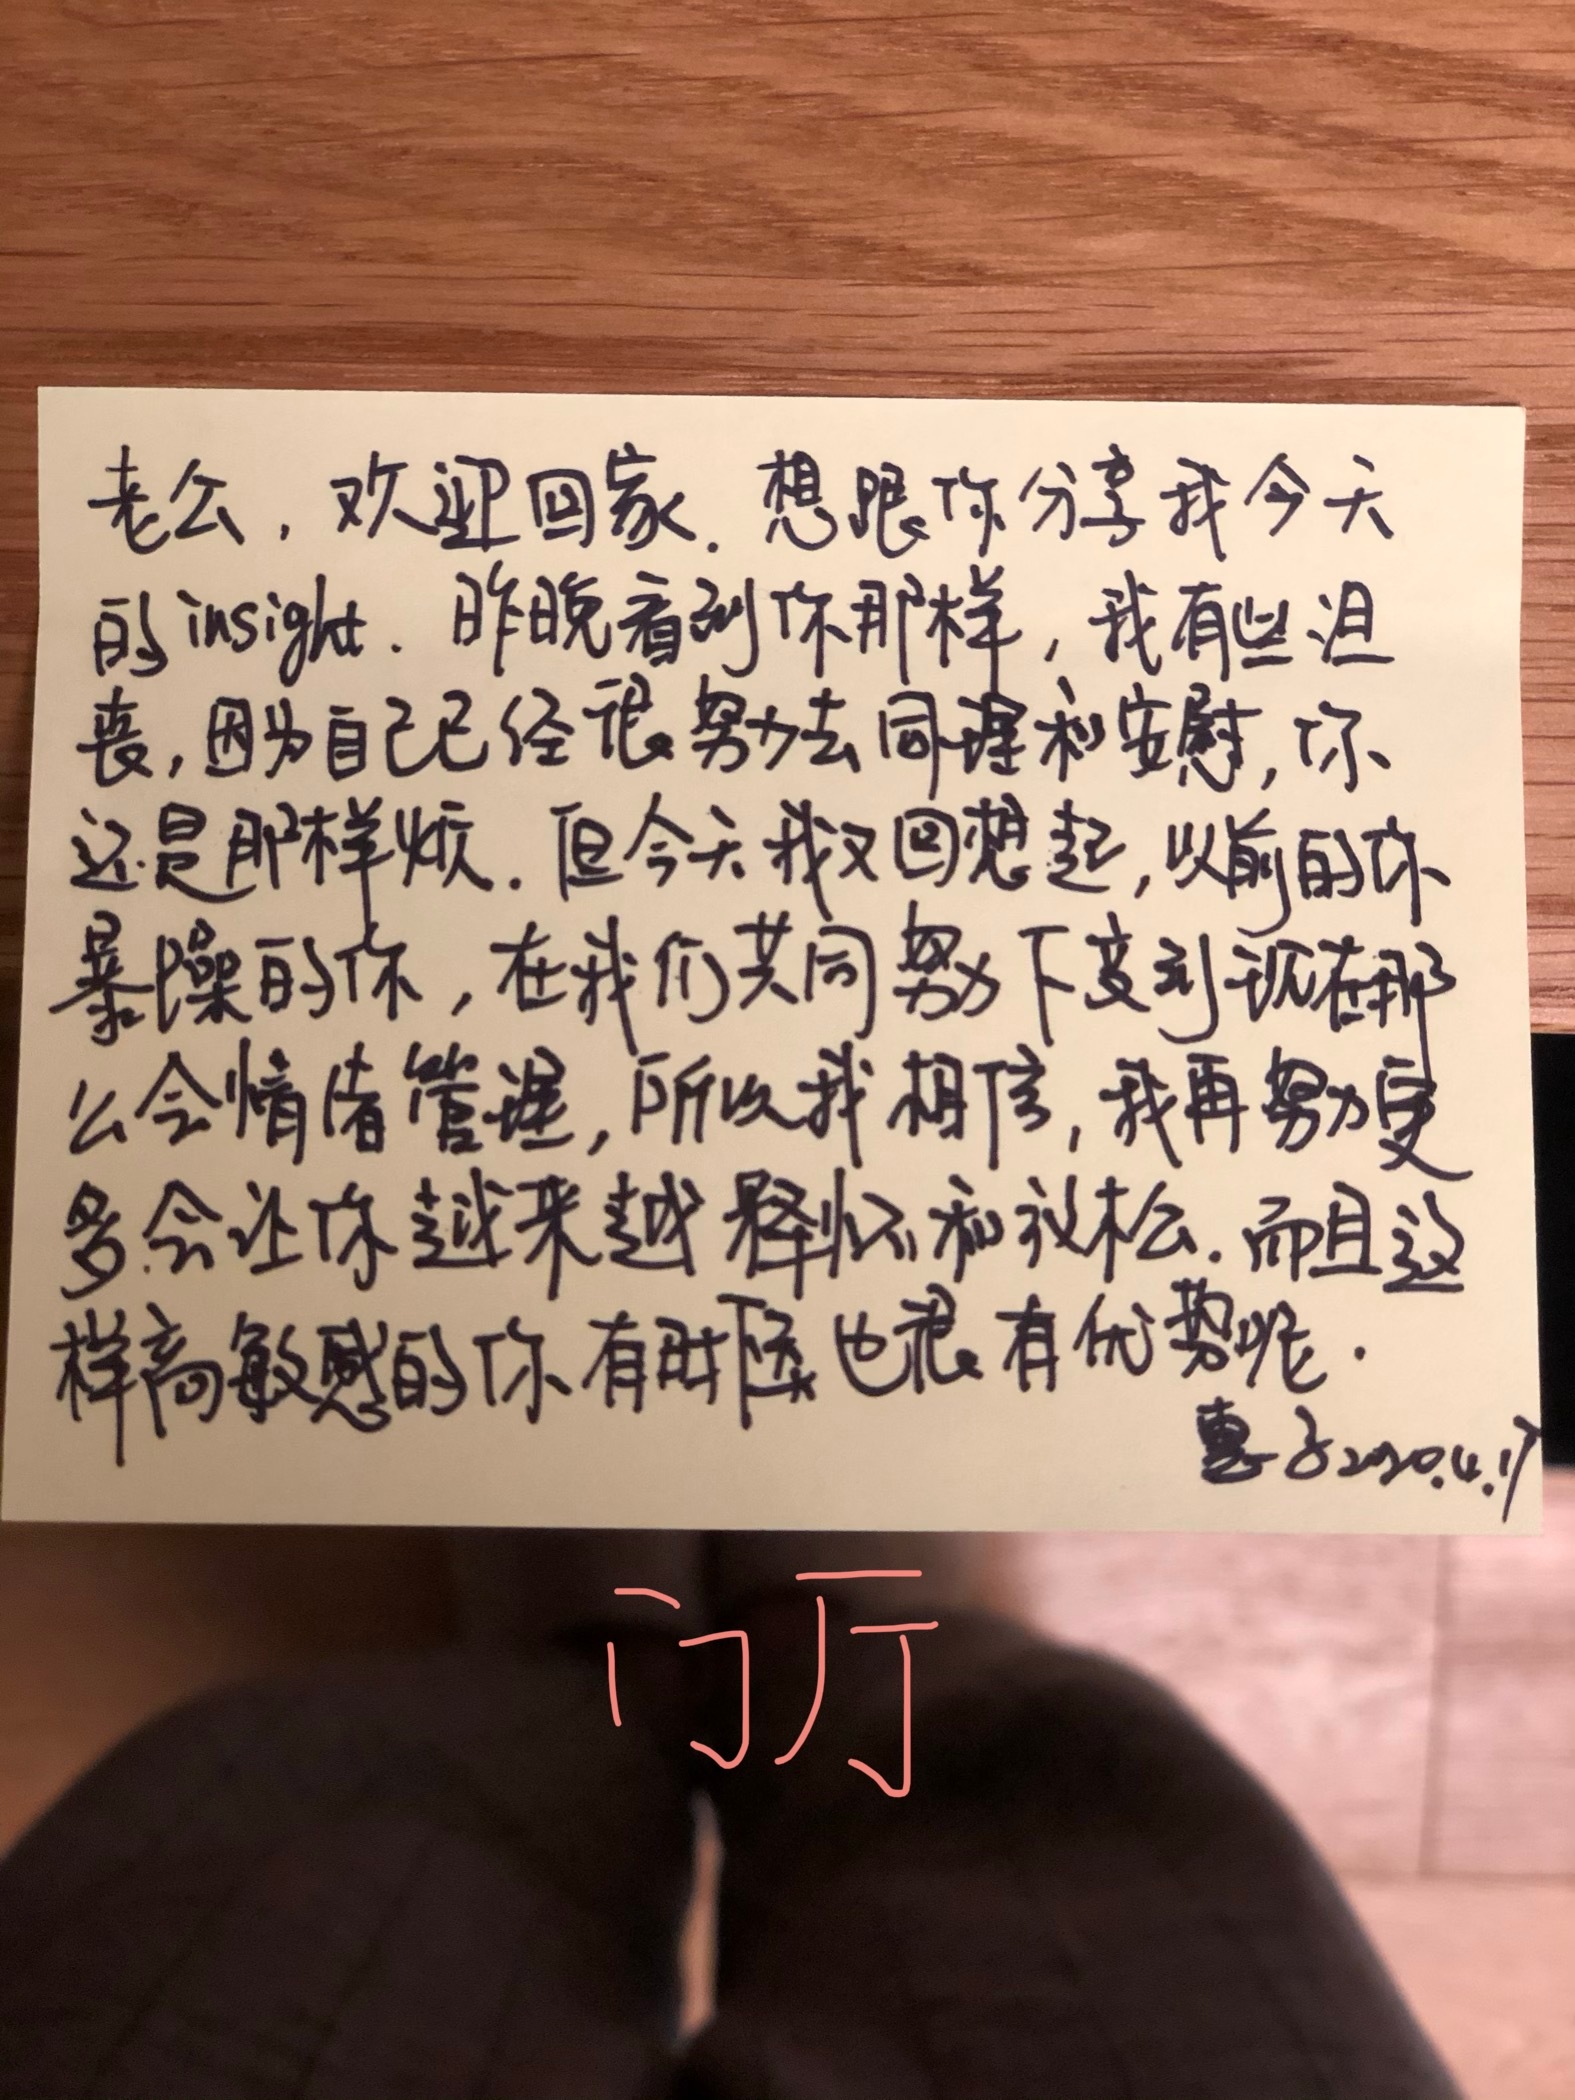 老公，欢迎回家．想跟你分享我今天
的insight．昨晚看到你那样，我有些沮
丧，因为自己已经很努力去同理和安慰，你
还是那样烦．但今天我又回想起，以前的你
暴躁的你，在我们共同努力下变到现在那
么会情绪管理，所以我相信，我再努力更
多会让你越来越释怀和放松．而且这
样高敏感的你有时候也很有优势呢．
惠子2020.4.17
门厅